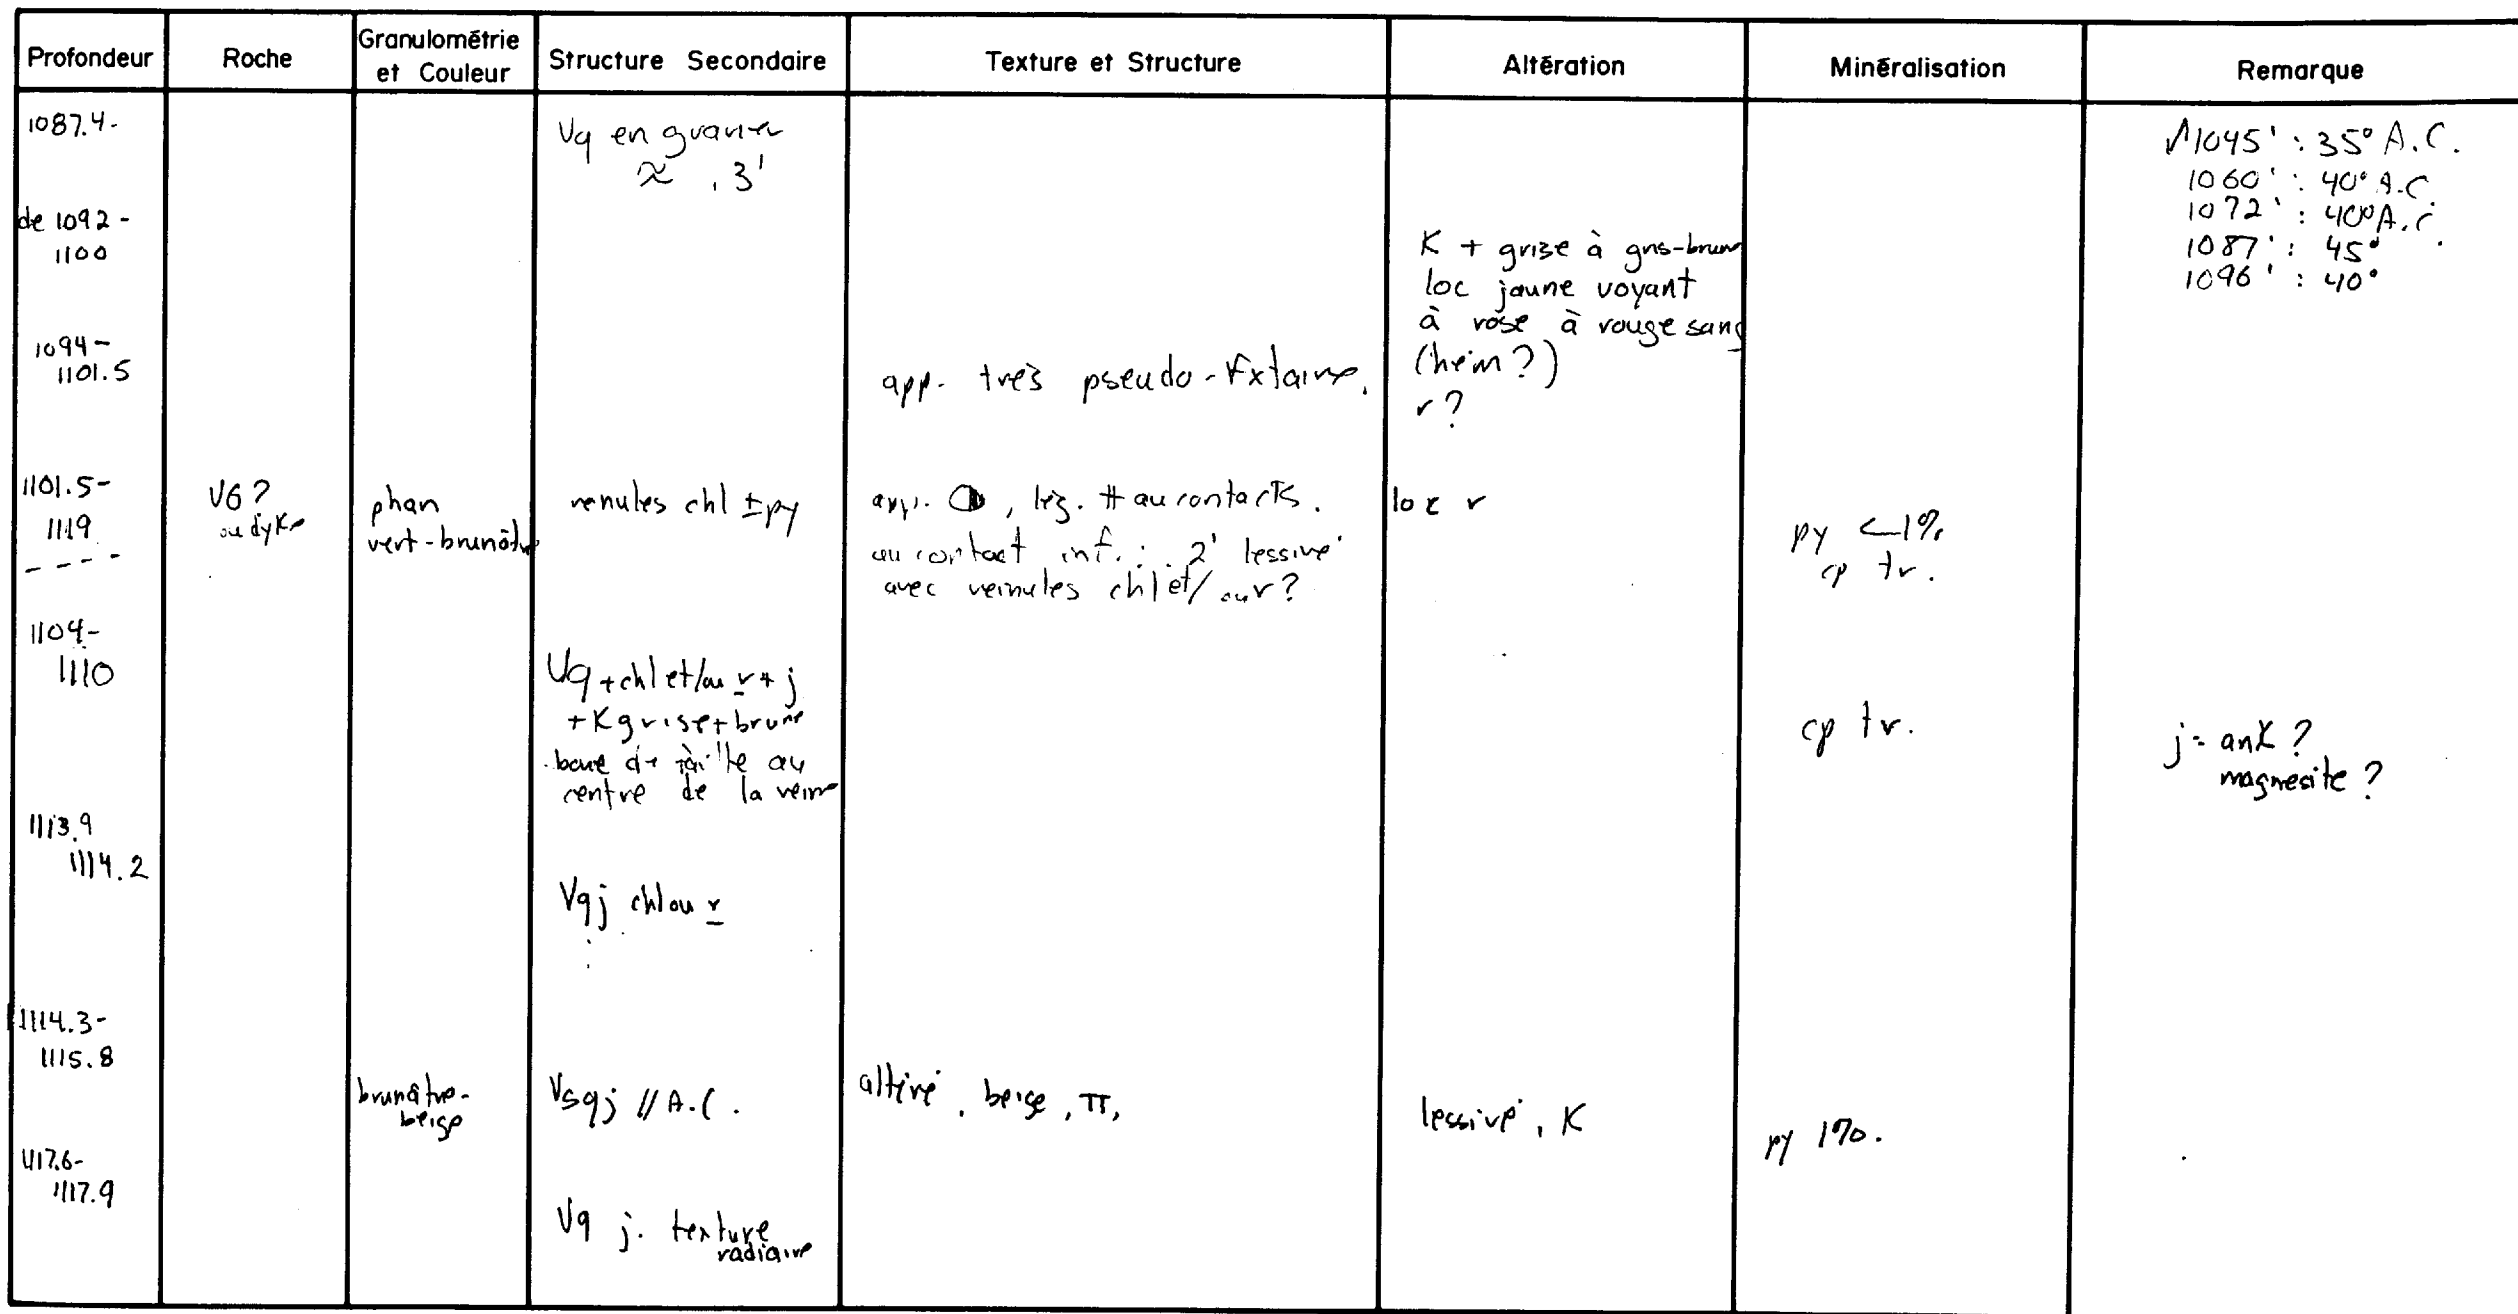 Profondeur
Roche
Granulométrie
et Couleur
Structure Secondaire
Texture et Structure
Altération
Minéralisation
Remarque
1087.4-
Vq en
≈ .3'
1045' : 35° A.C.
1060' : 40° A.C.
1072' : 40° A.C.
1087' : 45°
1096' : 40°
de 1092-
1100
K + grise à gris-brun
loc jaune voyant
à rose à rouge sang
(hém?)
r?
1094-
1101.5
app. très pseudo-
1101.5-
1119
V6?
ou dyke
phan
vert-brunâtre
venules chl ± py
app. , lég. # au contacts.
au contact inf. : .2' lessivé
avec veinules chl et/ou r?
loc r
py <1%
cp tr.
1104-
1110
Vq + chl et/ou r + j
+ K grise + brune
boue de faille au
centre de la veine
cp tr.
j = ank?
magnesite?
1113.9
1114.2
Vqj chl ou r
1114.3-
1115.8
brunâtre-
beige
Vsqj // A.C.
altéré, beige, π,
lessivé, K
py 1%.
1117.6-
1117.9
Vq j. texture
radiaire